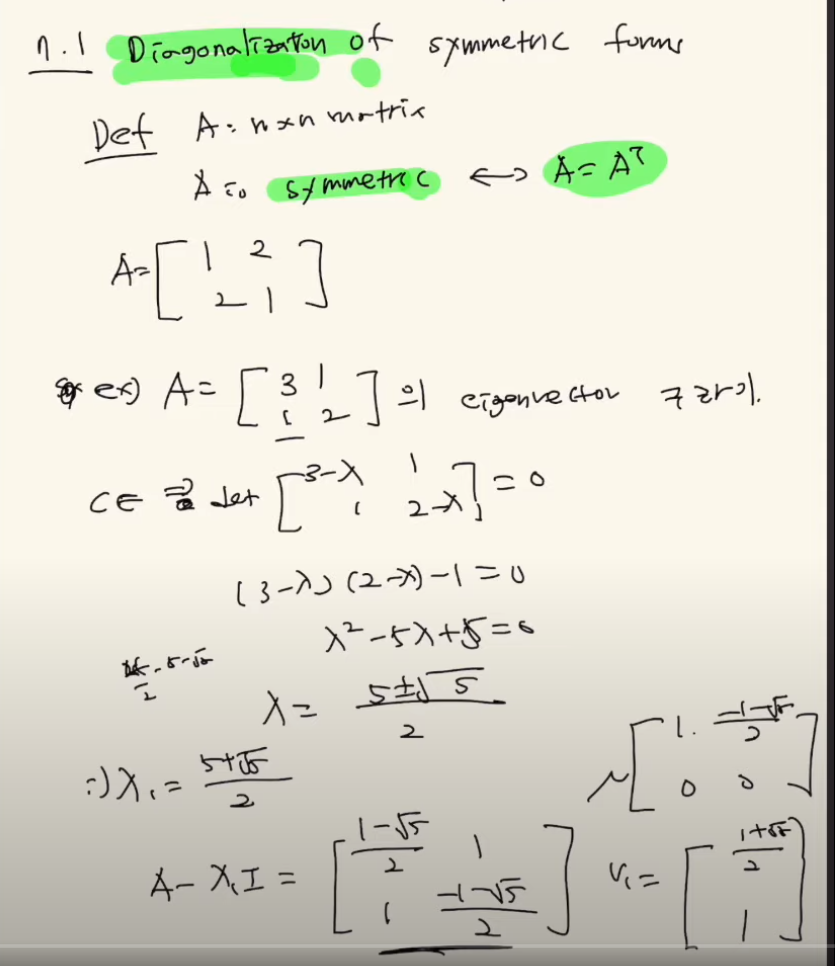 7.1 Diagonalization of symmetric forms
Def A: n×n matrix
A is symmetric ↔ A = Aᵀ
A= [ 1 2 ; 2 1 ]
ex) A = [ 3 1 ; 1 2 ] 의 eigenvector 구하기.
CE ⇒ det [ 3-λ 1 ; 1 2-λ ] = 0
(3-λ)(2-λ)-1=0
λ²-5λ+5=0
λ = (5±√5)/2
⇒) λ₁ = (5+√5)/2
~ [ 1 (-1-√5)/2 ; 0 0 ]
A-λ₁I = [ (1-√5)/2 1 ; 1 (-1-√5)/2 ]
v₁= [ (1+√5)/2 ; 1 ]